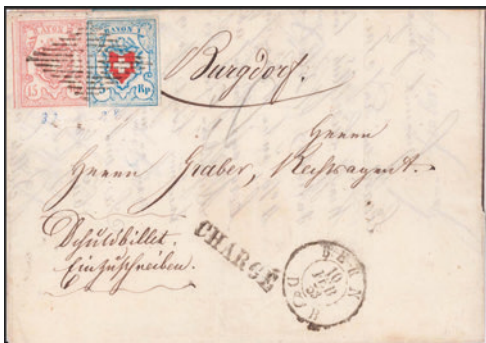 RAYON I
15
5 Rp
Burgdorf.
Herrn
Herrn Graber, Rechtsagent.
Schuldbillet.
Einzuschreiben.
CHARGÉ
BERN
10
FEB
53